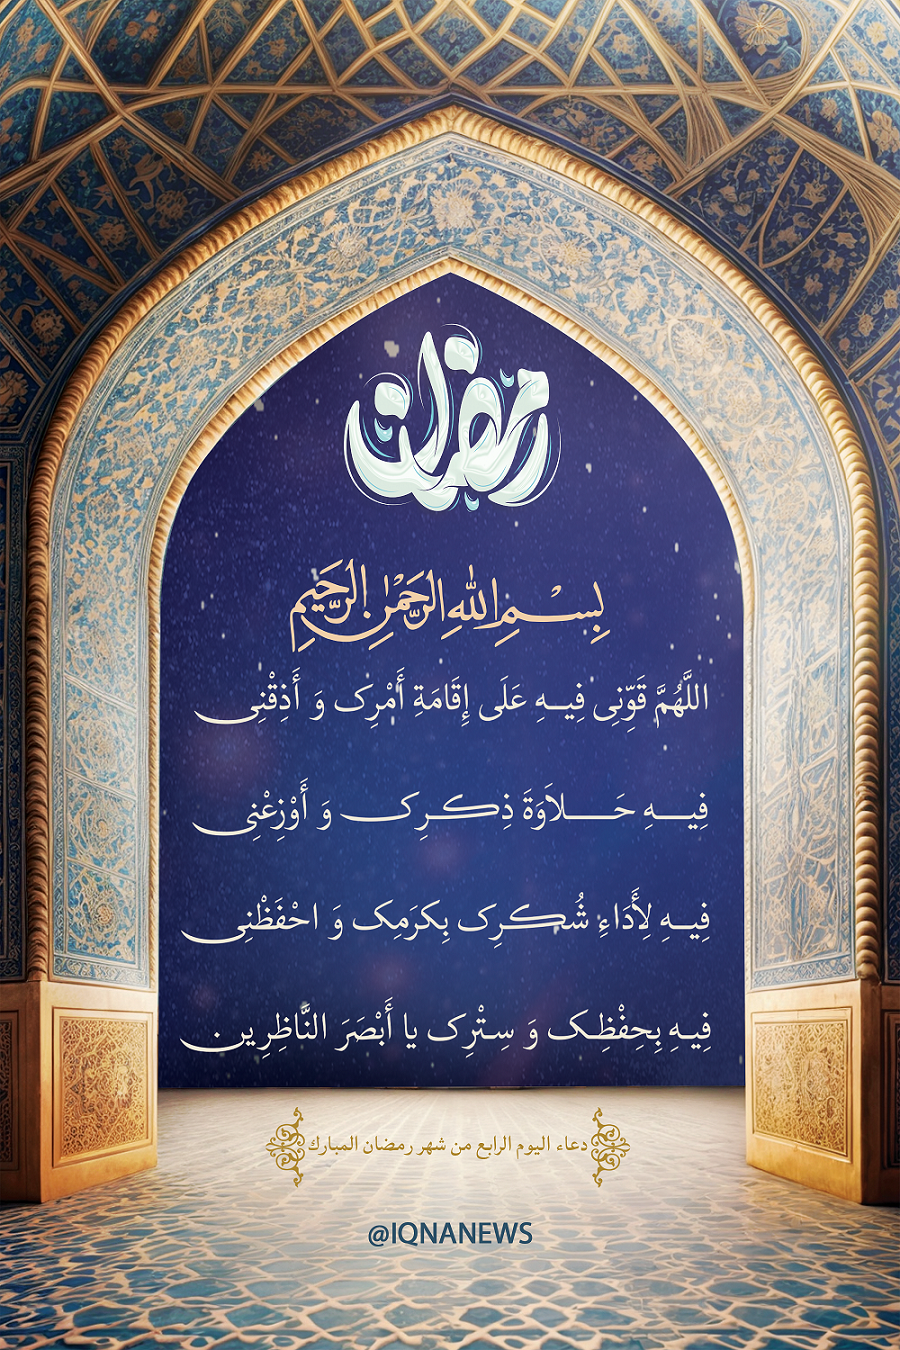 رمضان
بِسْمِ اللهِ الرَّحْمٰنِ الرَّحِیمِ
اللَّهُمَّ قَوِّنِی فِیهِ عَلَی إِقَامَةِ أَمْرِک وَ أَذِقْنِی
فِیهِ حَلاَوَةَ ذِکرِک وَ أَوْزِعْنِی
فِیهِ لِأَدَاءِ شُکرِک بِکرَمِک وَ احْفَظْنِی
فِیهِ بِحِفْظِک وَ سِتْرِک یا أَبْصَرَ النَّاظِرِین
دعاء اليوم الرابع من شهر رمضان المبارك
@IQNANEWS